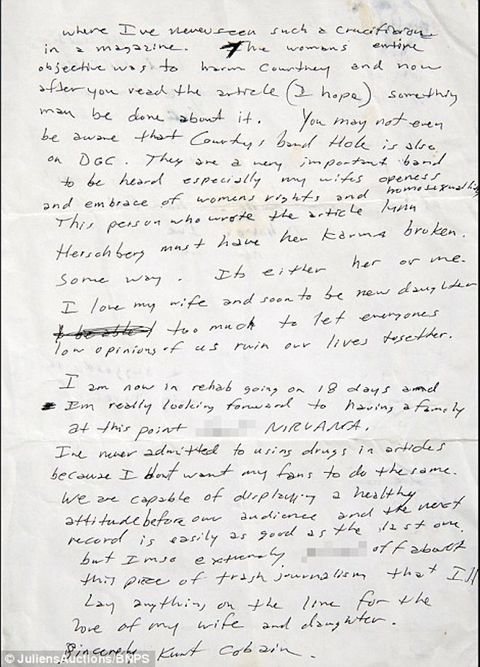 where I've never seen such a crucifixion
in a magazine. The womans entire
objective was to harm Courtney and now
after you read the article (I hope) something
may be done about it. You may not even
be aware that Courtys band Hole is also
on DGC. They are a very important band
to be heard especially my wifes openess
and embrace of womens rights and homosexuality
This person who wrote the article lynn
Herschberg must have her Karma broken.
Some way. Its either her or me.
I love my wife and soon to be new daughter
too much to let everyones
low opinions of us ruin our lives together.
I am now in rehab going on 18 days and
I'm really looking forward to having a family
at this point NIRVANA.
I've never admitted to using drugs in articles
because I dont want my fans to do the same.
We are capable of displaying a healthy
attitude before our audience and the next
record is easily as good as the last one.
but I'm so extremely off about
this piece of trash journalism that I'll
Lay anything on the line for the
love of my wife and daughter.
Sincerely Kurt Cobain.
© JuliensAuctions/BNPS